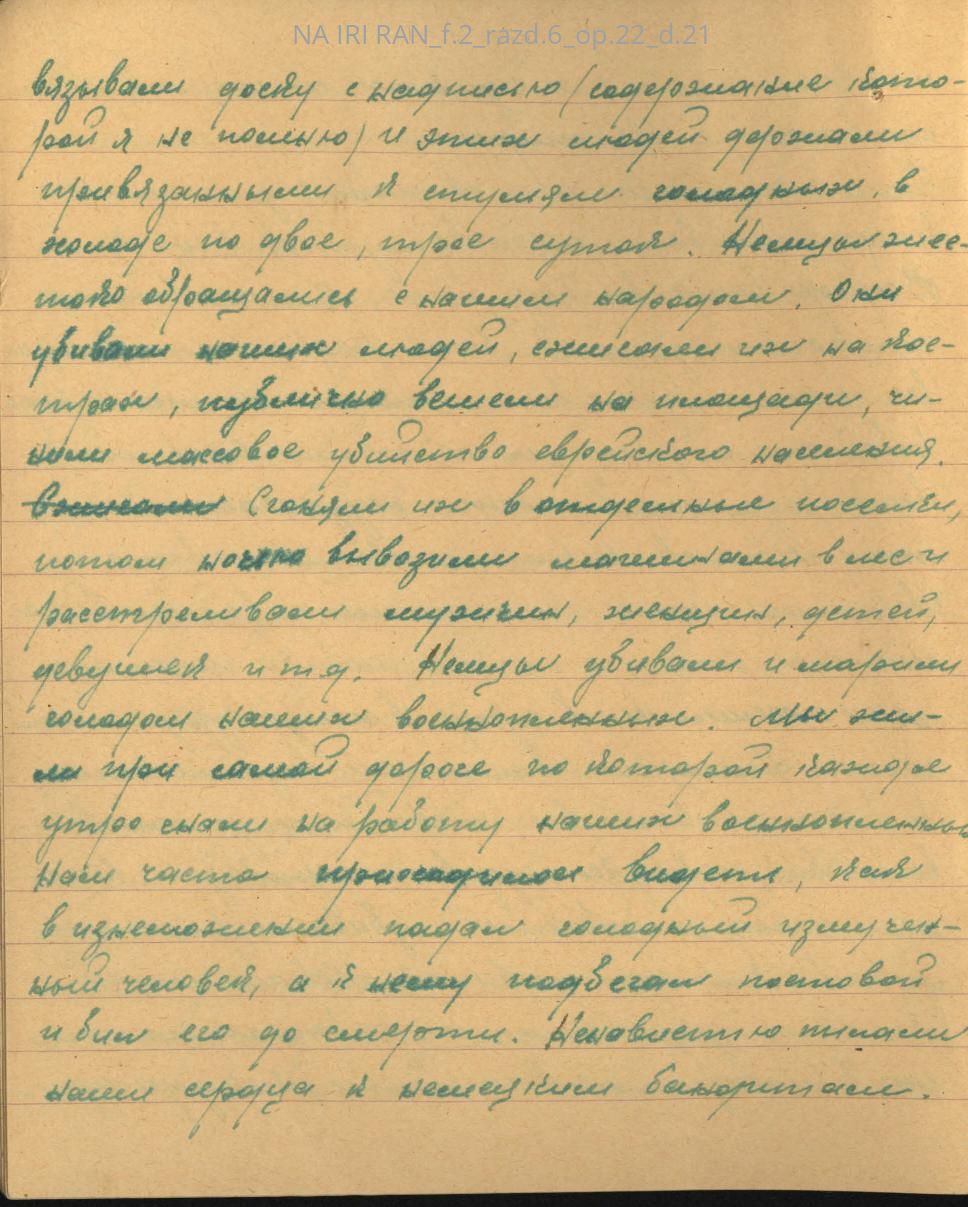 NA IRI RAN_f.2_razd.6_op.22_d.21
вязывали доску с надписью (содержание кото-
рой я не помню) и этих людей держали
привязанными к стульям голодных, в
холоде по двое, трое суток. Немцы жес-
токо обращались с нашим народом. Они
убивали наших людей, сжигали их на кос-
трах, публично вешали на площади, чи-
нили массовое убийство еврейского населения.
Сжигали Сгоняли их в отдельные поселки,
потом ночью вывозили машинами в лес и
расстреливали мужчин, женщин, детей,
девушек и т.д. Немцы убивали и марили
голодом наших военнопленных. Мы жи-
ли при самой дороге по которой каждое
утро гнали на работу наших военнопленных
Нам часто приходилось видеть, как
в изнеможении падал голодный измучен-
ный человек, а к нему подбегал постовой
и бил его до смерти. Ненавистью пылали
наши сердца к немецким бандитам.